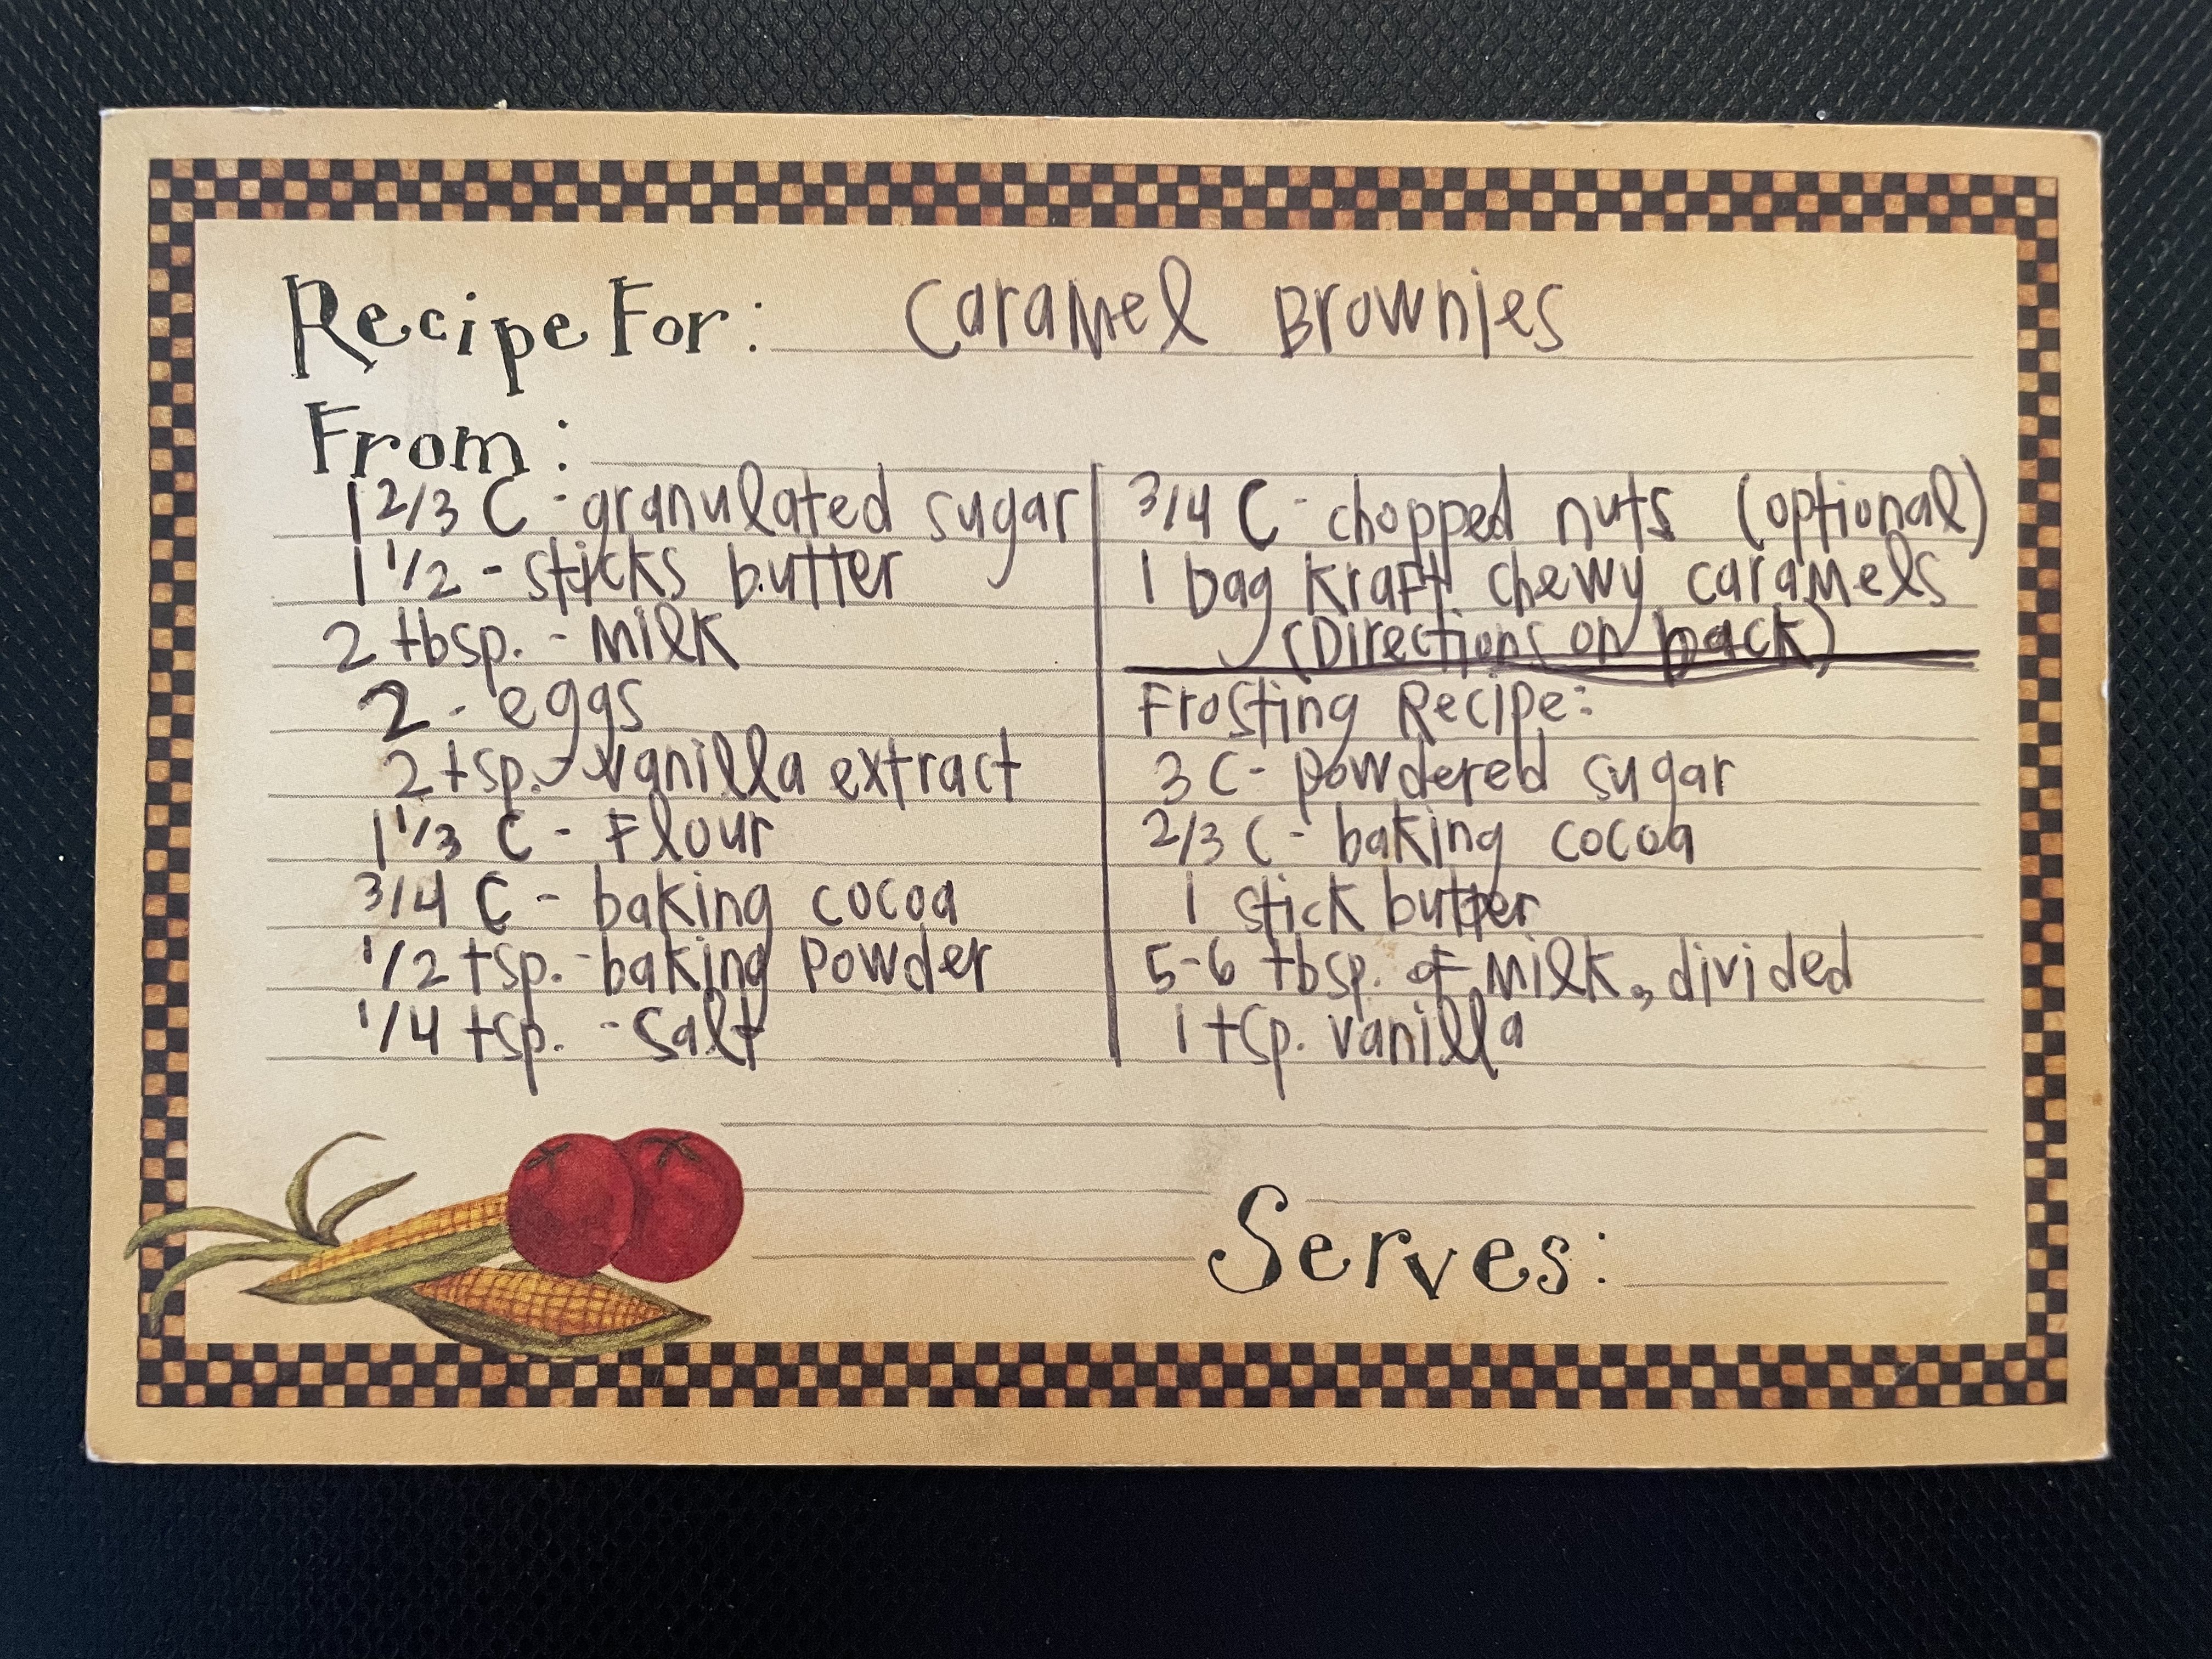 Recipe For: Caramel Brownies
From:
1 2/3 C - granulated sugar
1 1/2 - sticks butter
2 tbsp. - milk
2 - eggs
2 tsp. - vanilla extract
1 1/3 C - Flour
3/4 C - baking cocoa
1/2 tsp. - baking powder
1/4 tsp. - salt
3/4 C - chopped nuts (optional)
1 bag Kraft chewy caramels
(Directions on back)
Frosting Recipe:
3 C - powdered sugar
2/3 C - baking cocoa
1 stick butter
5-6 tbsp. of milk, divided
1 tsp. vanilla
Serves: